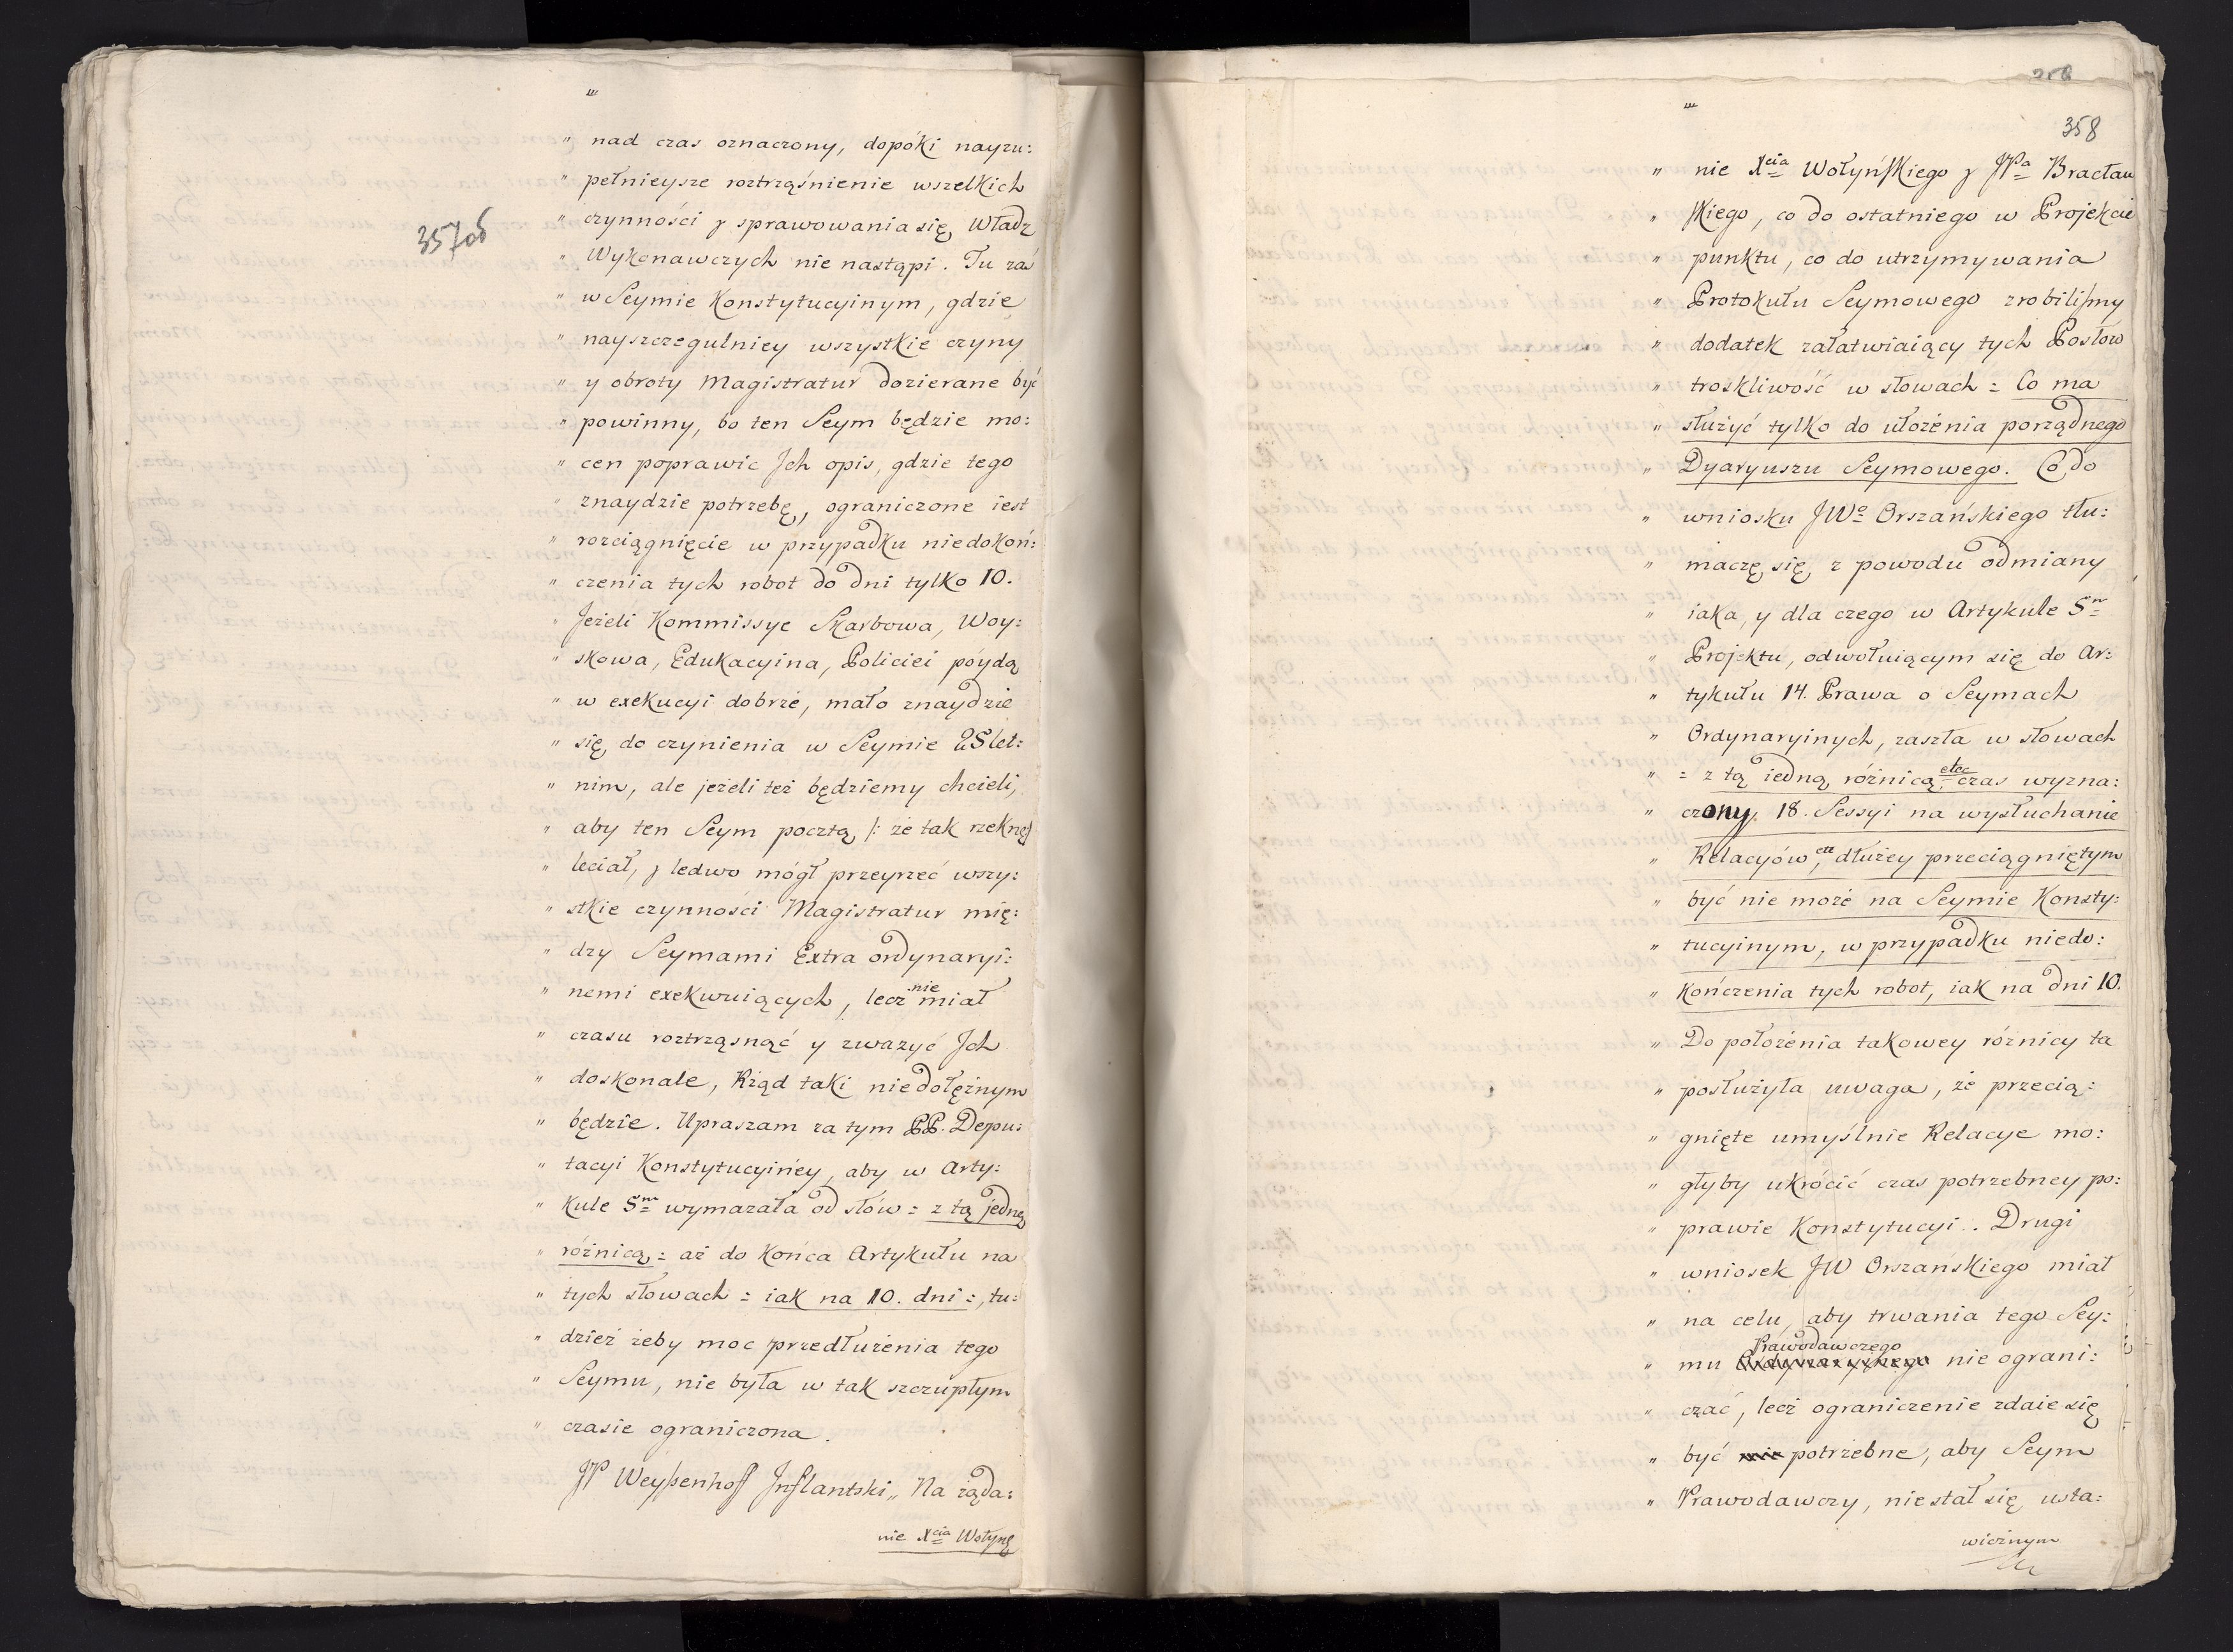 „ nad czas oznaczony, dopóki nayzu:
„ pełnieysze roztrząśnienie wszelkich
357об
„ czynności y sprawowania się Władz
„ Wykonawczych nie nastąpi. Tu zaś
„ w Seymie Konstytucyinym, gdzie
„ nayszczegulniey wszystkie czyny
„ y obroty Magistratur dozierane być
„ powinny, bo ten Seym będzie mo:
„ cen poprawic Jch opis, gdzie tego
„ znaydzie potrzebę, ograniczone iest
„ rozciągnięcie w przypadku niedokoń:
„ czenia tych robot do dni tylko 10.
„ Jeżeli Kommissye Skarbowa, Woy:
„ skowa, Edukacyina, Policiei póydą
„ w exekucyi dobrze, mało znaydzie
„ się do czynienia w Seymie 25let:
„ nim, ale jeżeli też będziemy chcieli,
„ aby ten Seym pocztą /: że tak rzeknę/
„ leciał, y ledwo mógł przeyrzeć wszy:
„ stkie czynności Magistratur mię:
„ dzy Seymami Extra ordynaryi:
„ nemi exekwuiących, lecz nie miał
„ czasu roztrząsnąć y zważyć Jch
„ doskonale, Rząd taki niedołężnym
„ będzie. Upraszam za tym PP. Depu:
„ tacyi Konstytucyiney, aby w Arty:
„ kule 5m wymazała od słów = z tą jedną
„ różnicą = aż do końca Artykułu na
„ tych słowach = iak na 10. dni =, tu:
„ dzież żeby moc przedłużenia tego
„ Seymu, nie była w tak szczupłym
„ czasie ograniczona.
JP Weyssenhoff Jnflantski „ Na żąda:
nie Xcia Wołyns
358
„ nie Xcia Wołyńskiego y JPa Bracław
„ skiego, co do ostatniego w Projekcie
„ punktu, co do utrzymywania
„ Protokułu Seymowego zrobilismy
„ dodatek załatwiaiący tych Posłow
„ troskliwość w słowach = Co ma
„ służyć tylko do ułożenia porządnego
„ Dyaryuszu Seymowego. Co do
„ wniosku JWo Orszańskiego tłu:
„ maczę się z powodu odmiany
„ iaka, y dla czego w Artykule 5m
„ Projektu, odwołuiącym się do Ar:
„ tykułu 14. Prawa o Seymach
„ Ordynaryinych, zaszła w słowach
„ = z tą iedną różnicą etcc czas wyzna:
„ czony. 18. Sessyi na wysłuchanie
„ Relacyów, ett dłużey przeciągniętym
„ być nie może na Seymie Konsty:
„ tucyinym, w przypadku niedo:
„ kończenia tych robot, iak na dni 10.
„ Do położenia takowey różnicy ta
„ posłużyła uwaga, że przecią:
„ gnięte umyślnie Relacye mo:
„ głyby ukrócić czas potrzebney po:
„ prawie Konstytucyi.. Drugi
„ wniosek JW Orszańskiego miał
„ na celu, aby trwania tego Sey:
„ mu Ordynaryinego Prawodawczego nie ograni:
„ czać, lecz ograniczenie zdaie się
„ być nie potrzebne, aby Seym
„ Prawodawczy, nie stał się usta:
wicznym